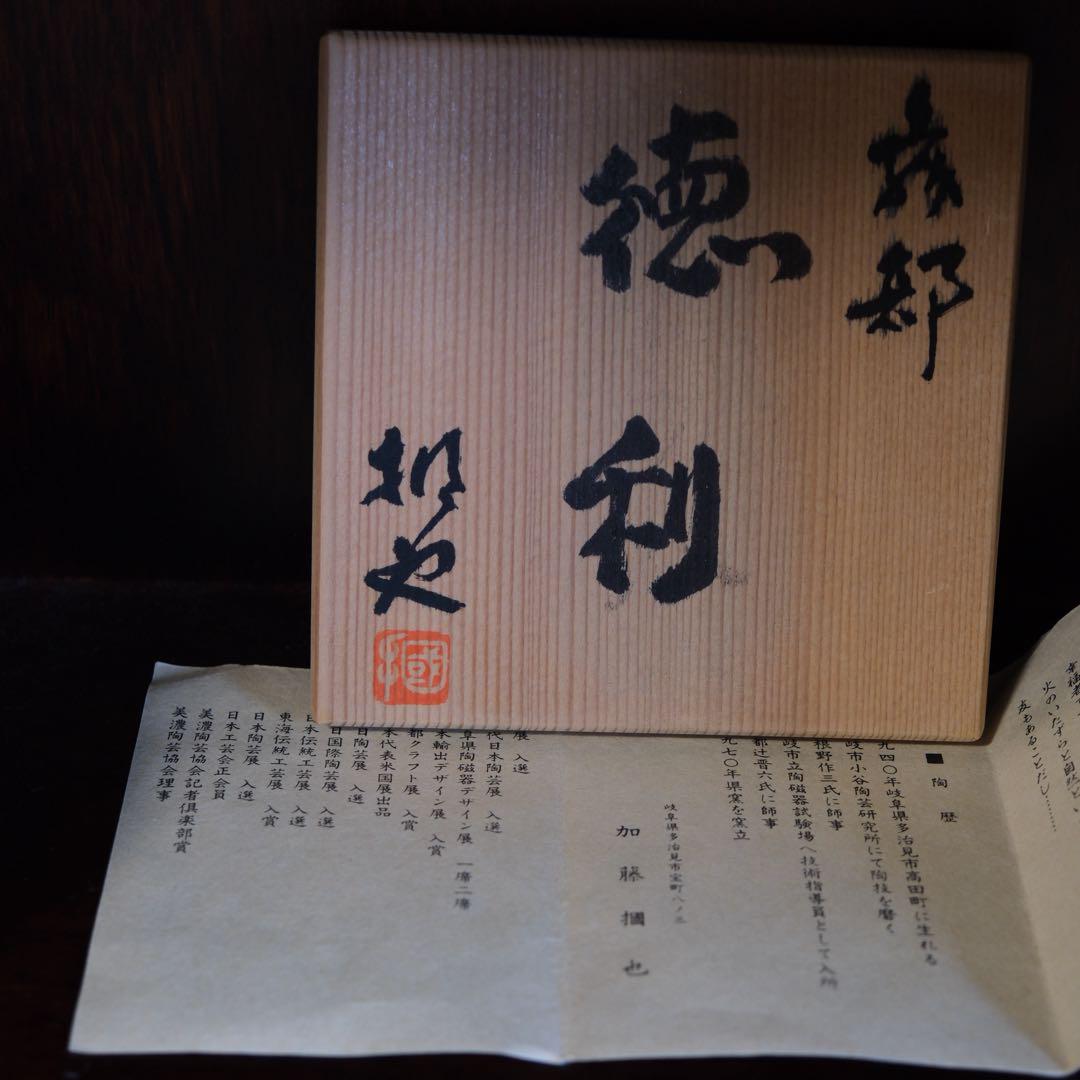 織部
徳利
摑也
摑
■陶歴
九四〇年岐阜県多治見市高田町に生れる
岐市小谷陶芸研究所にて陶技を磨く
根野作三氏に師事
岐市立陶磁器試験場へ技術指導員として入所
都辻晋六氏に師事
九七〇年県窯を窯立
岐阜県多治見市宝町八ノ三
加藤摑也
展 入選
代日本陶芸展 入選
阜県陶磁器デザイン展 一席二席
本輸出デザイン展 入賞
都クラフト展 入賞
本代表米国展出品
日陶芸展 入選
日国際陶芸展 入選
日本伝統工芸展 入選
東海伝統工芸展 入賞
日本陶芸展 入選
日本工芸会正会員
美濃陶芸協会記者倶楽部賞
美濃陶芸協会理事
火のいたずらと自然
友もあることだし……